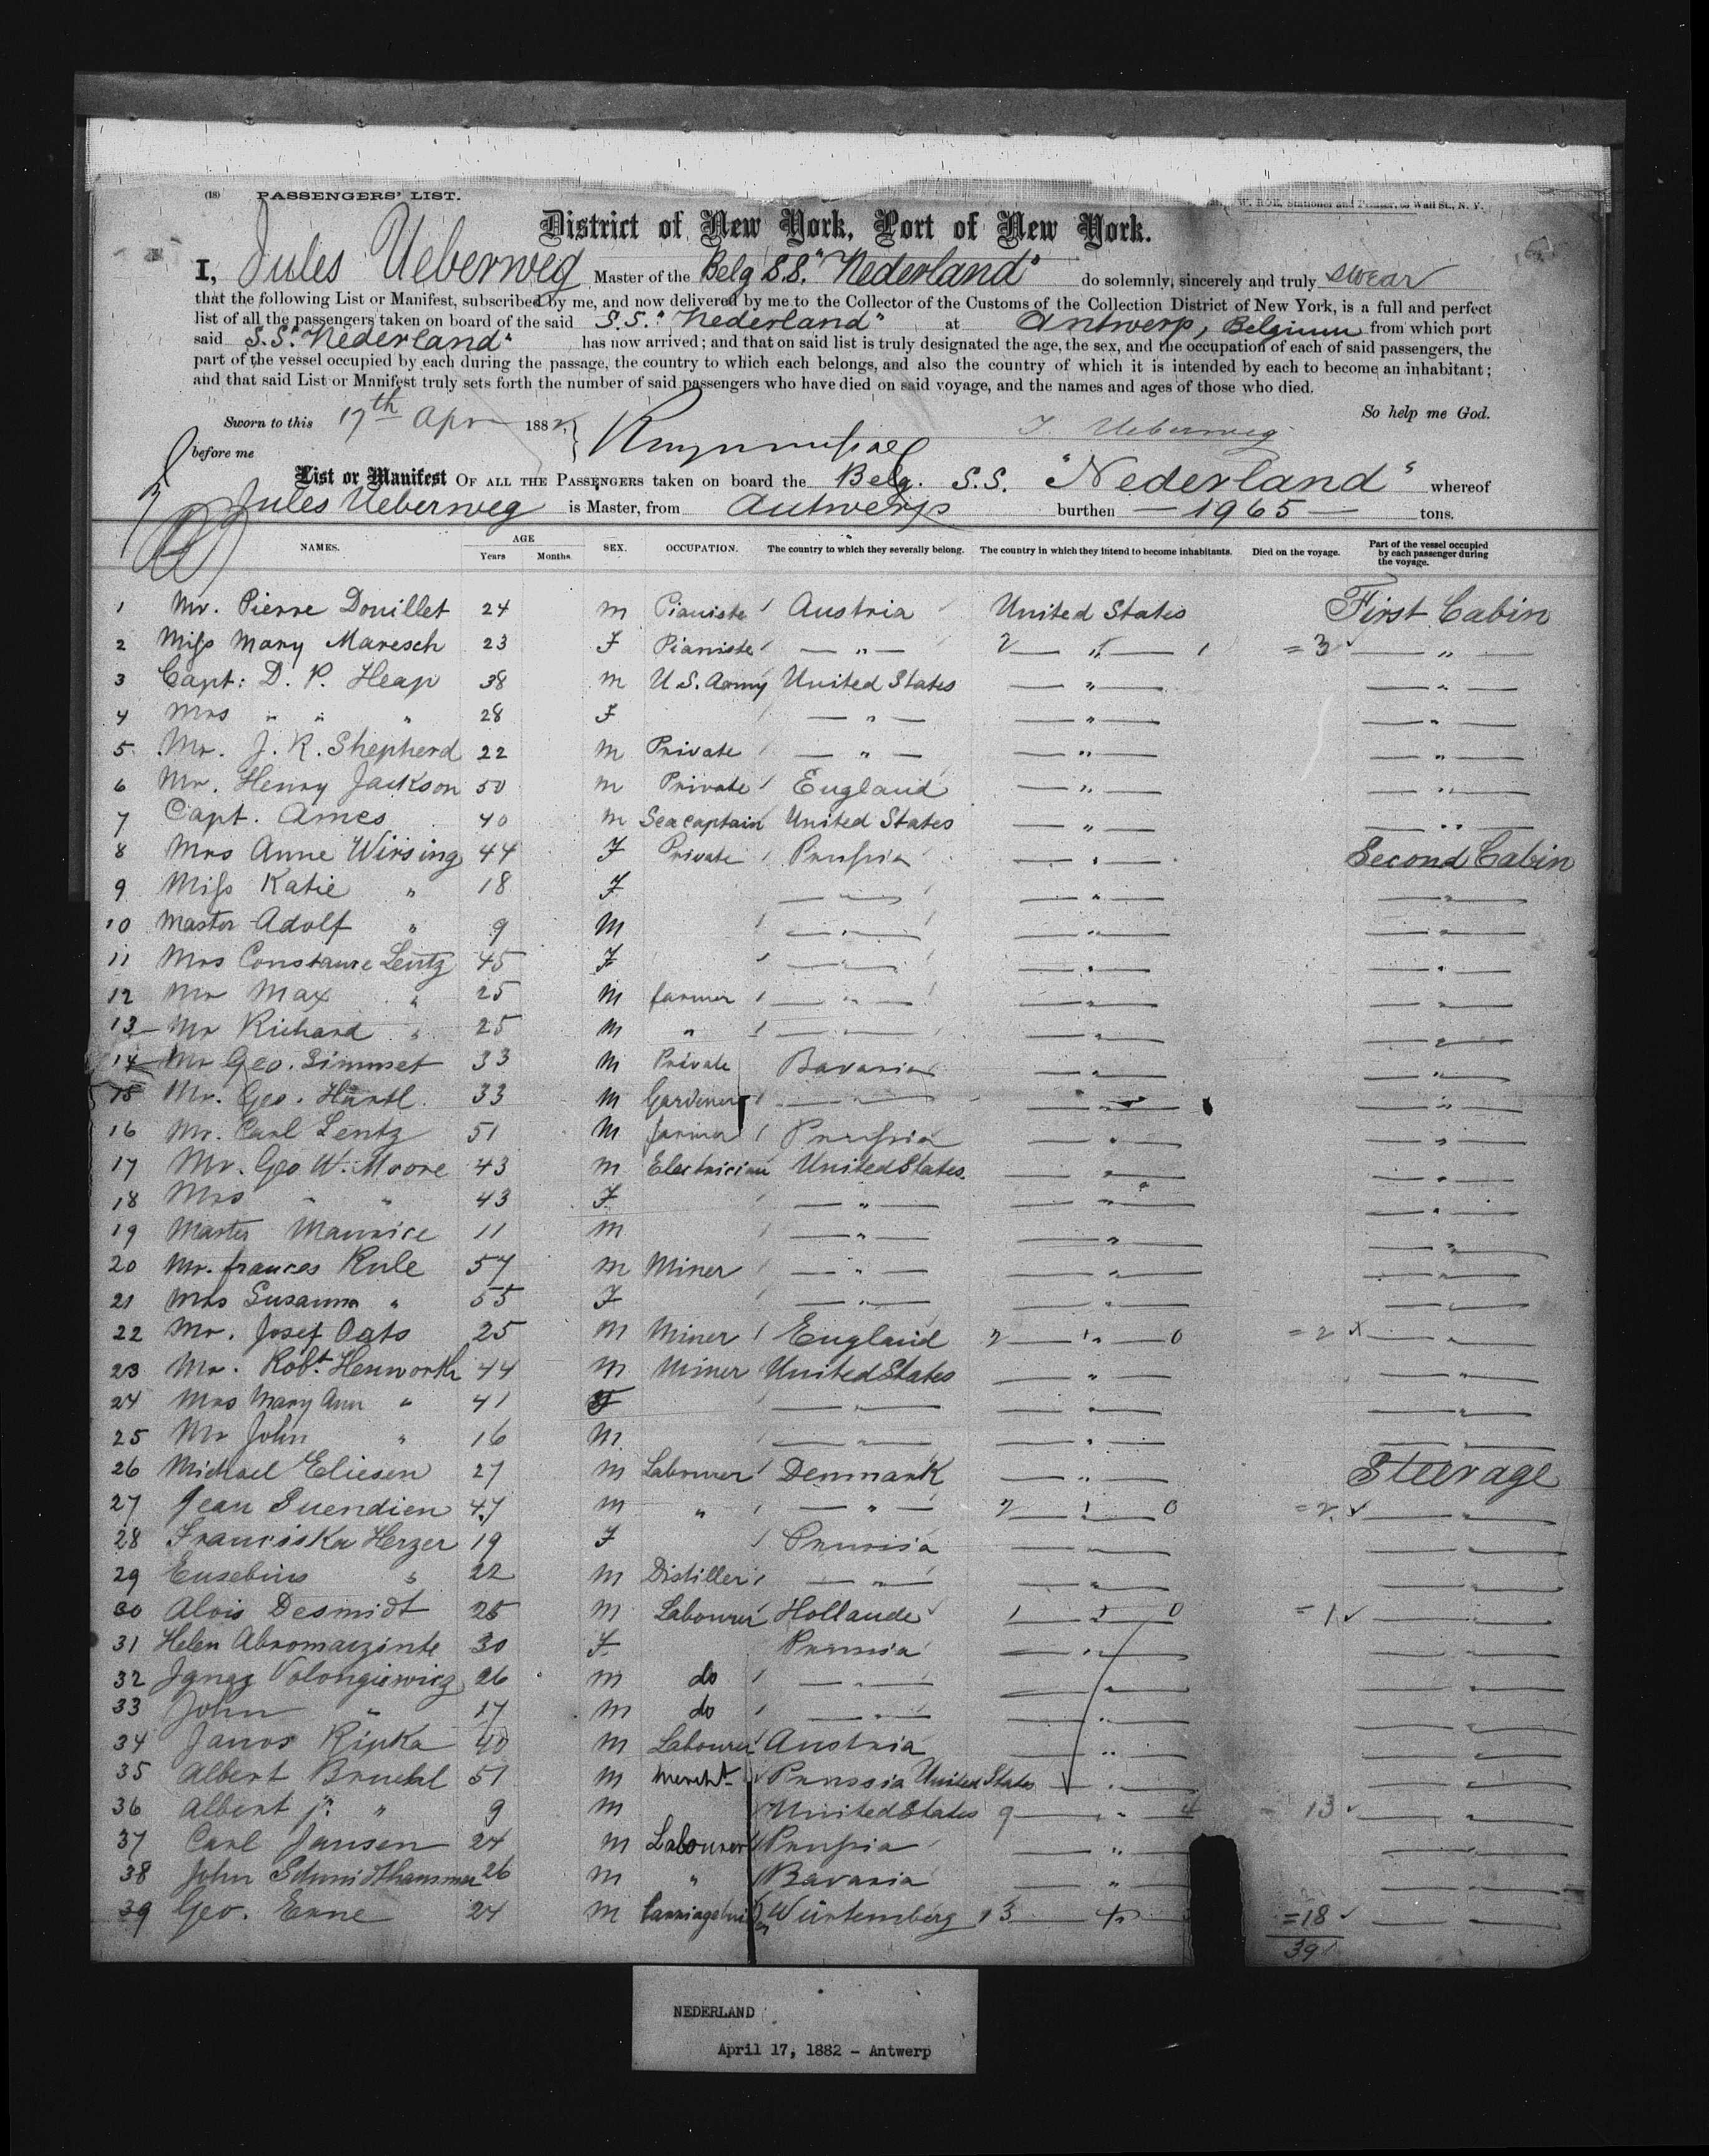 (18) PASSENGERS' LIST.
District of New York, Port of New York.
I, Jules Ueberweg Master of the Belg S.S. "Nederland" do solemnly, sincerely and truly swear
that the following List or Manifest, subscribed by me, and now delivered by me to the Collector of the Customs of the Collection District of New York, is a full and perfect
list of all the passengers taken on board of the said S.S. "Nederland" at Antwerp, Belgium from which port
said S.S. "Nederland" has now arrived; and that on said list is truly designated the age, the sex, and the occupation of each of said passengers, the
part of the vessel occupied by each during the passage, the country to which each belongs, and also the country of which it is intended by each to become an inhabitant;
and that said List or Manifest truly sets forth the number of said passengers who have died on said voyage, and the names and ages of those who died.
So help me God.
Sworn to this 17th Apr 1882, J. Ueberweg
before me
List or Manifest OF ALL THE PASSENGERS taken on board the Belg. S.S. "Nederland" whereof
Jules Ueberweg is Master, from Antwerp burthen — 1965 — tons.
NAMES. AGE Years Months. SEX. OCCUPATION. The country to which they severally belong. The country in which they intend to become inhabitants. Died on the voyage. Part of the vessel occupied by each passenger during the voyage.
1 Mr. Pierre Douillet 24 M Pianiste Austria United States First Cabin
2 Miss Mary Maresch 23 F Pianiste — " — 2 — " — 1 = 3 — " —
3 Capt: D. P. Heap 38 M U.S. Army United States — " — — " —
4 Mrs " " " 28 F — " — — " — — " —
5 Mr. J. R. Shepherd 22 M Private — " — — " — — " —
6 Mr. Henry Jackson 50 M Private England — " — — " —
7 Capt. Ames 40 M Sea captain United States — " — — " —
8 Mrs Anne Wirsing 44 F Private Prussia — " — Second Cabin
9 Miss Katie " 18 F — " — — " — — " —
10 Master Adolf " 9 M — " — — " — — " —
11 Mrs Constance Lentz 45 F — " — — " — — " —
12 Mr Max " 25 M farmer — " — — " — — " —
13 Mr Richard " 25 M " — " — — " — — " —
14 Mr Geo. Simmet 33 M Private Bavaria — " — — " —
15 Mr. Geo. Härtl 33 M Gardener — " — — " — — " —
16 Mr. Carl Lentz 51 M farmer Prussia — " — — " —
17 Mr. Geo W. Moore 43 M Electrician United States — " — — " —
18 Mrs " " 43 F — " — — " — — " —
19 Master Maurice 11 M — " — — " — — " —
20 Mr. frances Rule 57 M Miner — " — — " — — " —
21 Mrs Susanna " 55 F — " — — " — — " —
22 Mr. Josef Oats 25 M Miner England 2 — " — 0 = 2 x — " —
23 Mr. Robt. Henworth 44 M Miner United States — " — — " —
24 Mrs Mary Ann " 41 F — " — — " — — " —
25 Mr John " 16 M — " — — " — — " —
26 Michael Eliesen 27 M Labourer Denmark — " — Steerage
27 Jean Suendien 47 M " — " — 2 — " — 0 = 2 — " —
28 Franciska Herzer 19 F Prussia — " — — " —
29 Eusebius " 22 M Distiller — " — — " — — " —
30 Alois Desmidt 25 M Labourer Hollande 1 — " — 0 = 1 — " —
31 Helen Abromarzinte 30 F Prussia — " — — " —
32 Ignaz Volongiewicz 26 M do — " — — " — — " —
33 John " 17 M do — " — — " — — " —
34 Janos Ripka 40 M Labourer Austria — " — — " —
35 Albert Bruehl 51 M Mercht. Prussia United States — " — — " —
36 Albert jr. " 9 M United States 9 — " — 4 = 13 — " —
37 Carl Jansen 24 M Labourer Prussia — " — — " —
38 John 26 M " Bavaria — " — — " —
39 Geo. Enne 24 M Würtemberg 13 — " — = 18 — " —
39
NEDERLAND
April 17, 1882 - Antwerp